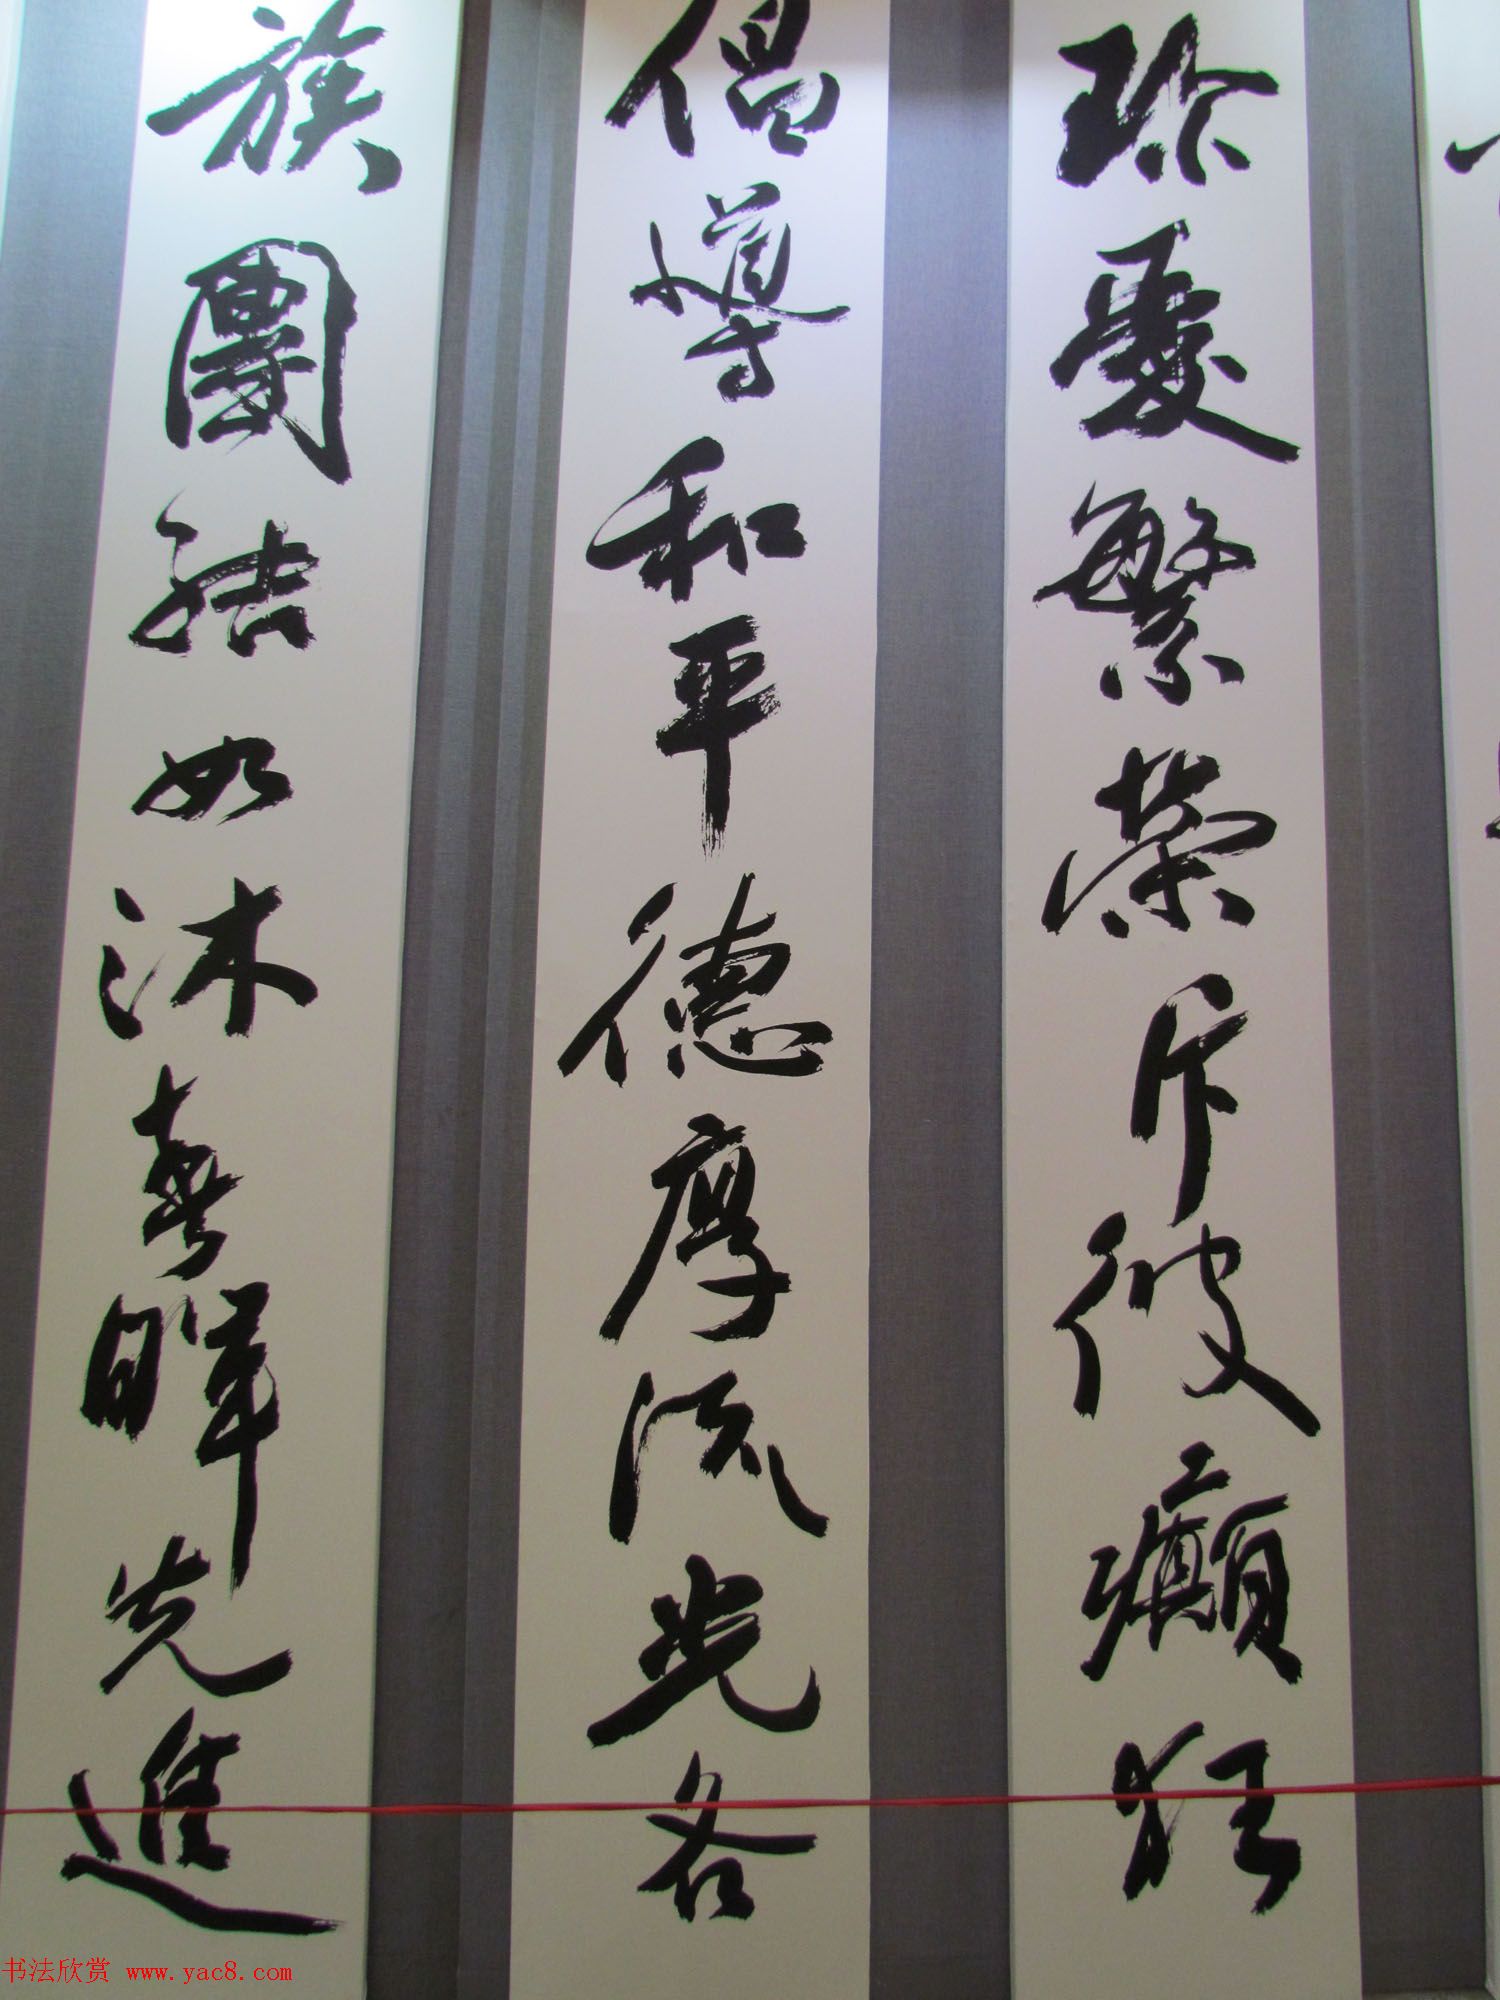 珍愛繁榮斥彼癲狂
倡導和平德厚流光各
族團結如沐春暉先進
书法欣赏 www.yac8.com